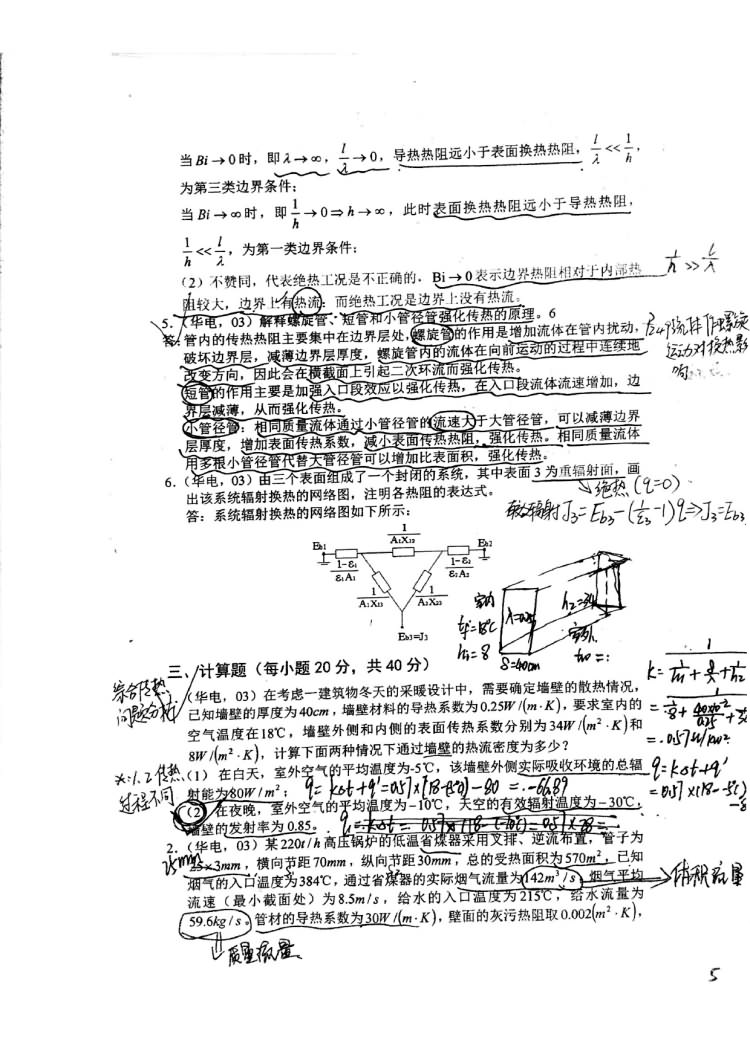 当 Bi → 0 时，即 λ → ∞，l/λ → 0，导热热阻远小于表面换热热阻，l/λ << 1/h，
为第三类边界条件；
当 Bi → ∞ 时，即 1/h → 0 ⇒ h → ∞，此时表面换热热阻远小于导热热阻，
1/h << l/λ，为第一类边界条件；
（2）不赞同，代表绝热工况是不正确的。Bi → 0 表示边界热阻相对于内部热
阻较大，边界上有热流；而绝热工况是边界上没有热流。
1/h >> l/λ
5.（华电，03）解释螺旋管、短管和小管径管强化传热的原理。6
答：管内的传热热阻主要集中在边界层处，螺旋管的作用是增加流体在管内扰动，
破坏边界层，减薄边界层厚度，螺旋管内的流体在向前运动的过程中连续地
改变方向，因此会在横截面上引起二次环流而强化传热。
短管的作用主要是加强入口段效应以强化传热，在入口段流体流速增加，边
界层减薄，从而强化传热。
小管径管：相同质量流体通过小管径管的流速大于大管径管，可以减薄边界
层厚度，增加表面传热系数，减小表面传热热阻，强化传热。相同质量流体
用多根小管径管代替大管径管可以增加比表面积，强化传热。
6.（华电，03）由三个表面组成了一个封闭的系统，其中表面 3 为重辐射面，画
出该系统辐射换热的网络图，注明各热阻的表达式。
绝热 (q=0)
答：系统辐射换热的网络图如下所示：
J₃=Eb₃-(1/ε₃-1)q⇒J₃=Eb₃
1/A₁X₁₂
Eb1
Eb2
1-ε₁/ε₁A₁
1-ε₂/ε₂A₂
1/A₁X₁₃
1/A₂X₂₃
Eb3=J₃
室内
tf=18℃
h₁=8
δ=40cm
室外
三、计算题（每小题 20 分，共 40 分）
K=1/(1/h₁+δ/λ+1/h₂)
综合传热
问题分析
1.（华电，03）在考虑一建筑物冬天的采暖设计中，需要确定墙壁的散热情况，
已知墙壁的厚度为 40cm，墙壁材料的导热系数为 0.25W/(m·K)，要求室内的
空气温度在 18℃，墙壁外侧和内侧的表面传热系数分别为 34W/(m²·K) 和
8W/(m²·K)，计算下面两种情况下通过墙壁的热流密度为多少？
*1.2 传热
过程不同
（1）在白天，室外空气的平均温度为-5℃，该墙壁外侧实际吸收环境的总辐
射能为80W/m²；
q=kΔt+q'
（2）在夜晚，室外空气的平均温度为−10℃，天空的有效辐射温度为−30℃，
墙壁的发射率为 0.85。
2.（华电，03）某 220t/h 高压锅炉的低温省煤器采用叉排、逆流布置，管子为
25mm
25×3mm，横向节距 70mm，纵向节距 30mm，总的受热面积为 570m²，已知
烟气的入口温度为 384℃，通过省煤器的实际烟气流量为 142m³/s，烟气平均
体积流量
流速（最小截面处）为 8.5m/s，给水的入口温度为 215℃，给水流量为
59.6kg/s。管材的导热系数为 30W/(m·K)，壁面的灰污热阻取 0.002(m²·K)，
质量流量
5